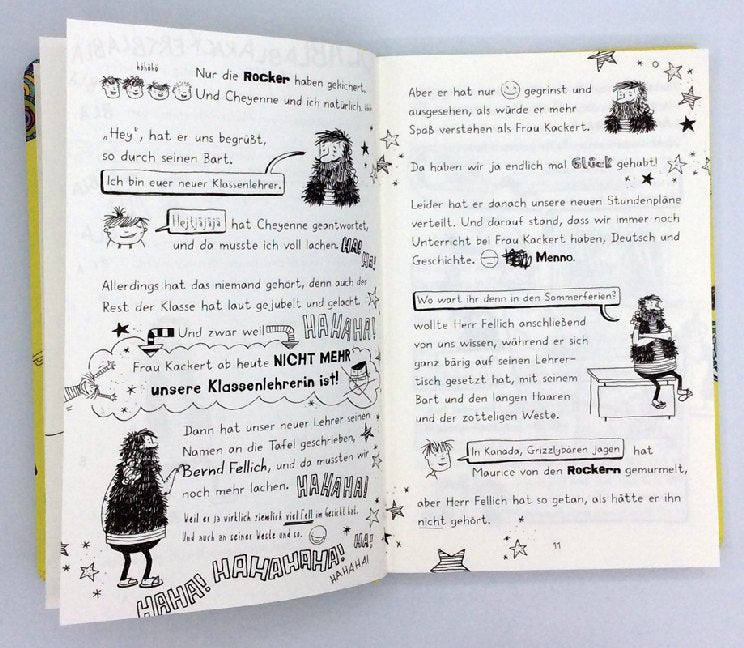 hihihihi
Nur die Rocker haben gekichert.
Und Cheyenne und ich natürlich.
„Hey", hat er uns begrüßt,
so durch seinen Bart.
Ich bin euer neuer Klassenlehrer.
Hejtjajaja hat Cheyenne geantwortet,
und da musste ich voll lachen. HA!
HA!
Allerdings hat das niemand gehört, denn auch der
Rest der Klasse hat laut gejubelt und gelacht.
Und zwar weil HAHAHA!
Frau Kackert ab heute NICHT MEHR
unsere Klassenlehrerin ist!
Dann hat unser neuer Lehrer seinen
Namen an die Tafel geschrieben,
Bernd Fellich, und da mussten wir
noch mehr lachen. HAHAHA!
Weil er ja wirklich ziemlich viel Fell im Gesicht hat.
Und auch an seiner Weste und so.
HA!
HAHA! HAHAHAHA!
HAHAHA!
Aber er hat nur gegrinst und
ausgesehen, als würde er mehr
Spaß verstehen als Frau Kackert.
Da haben wir ja endlich mal Glück gehabt!
Leider hat er danach unsere neuen Stundenpläne
verteilt. Und darauf stand, dass wir immer noch
Unterricht bei Frau Kackert haben, Deutsch und
Geschichte. Menno.
Wo wart ihr denn in den Sommerferien?
wollte Herr Fellich anschließend
von uns wissen, während er sich
ganz bärig auf seinen Lehrer-
tisch gesetzt hat, mit seinem
Bart und den langen Haaren
und der zotteligen Weste.
In Kanada, Grizzlybären jagen hat
Maurice von den Rockern gemurmelt,
aber Herr Fellich hat so getan, als hätte er ihn
nicht gehört.
11